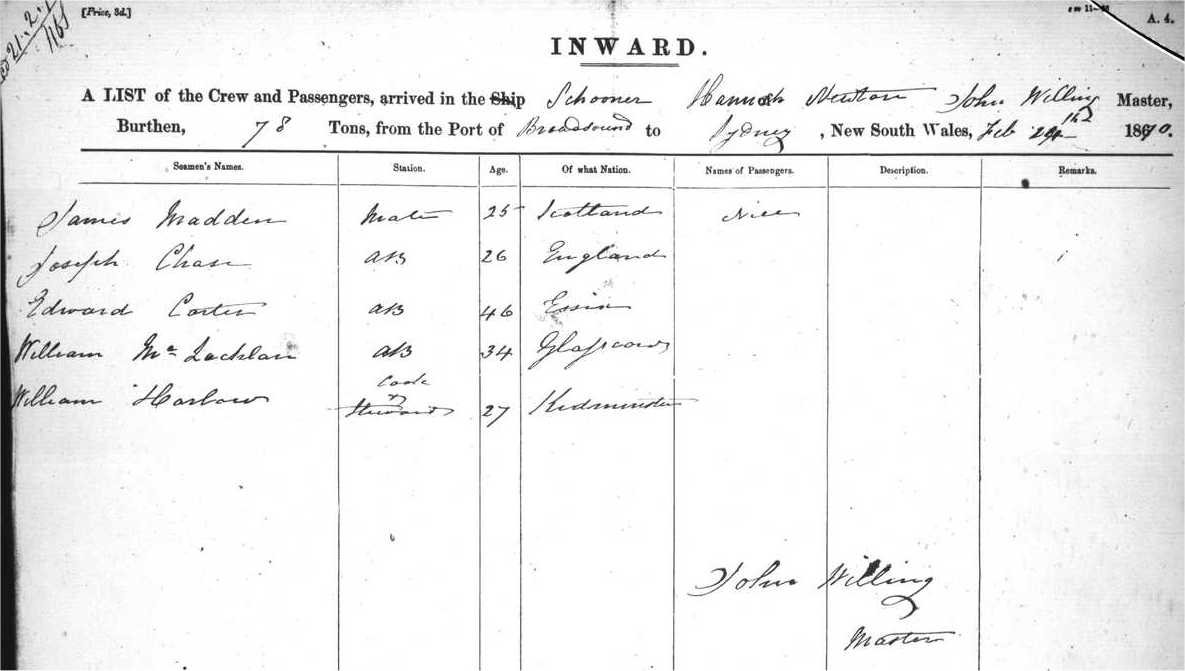 [Price, 3d.]
21.2.
A. 4.
INWARD.
A LIST of the Crew and Passengers, arrived in the Ship Schooner Hannah Newton John Willing Master,
Burthen, 78 Tons, from the Port of Broadsound to Sydney, New South Wales, Feb th 1870.
Seamen's Names. Station. Age. Of what Nation. Names of Passengers. Description. Remarks.
James Madden Mate 25 Scotland Nill
Joseph Chase AB 26 England
Edward Carter AB 46 Essix
William Mc Lachlan AB 34 Glasscow
Cook
William Harlow & Steward 27 Kidminster
John Willing
Master